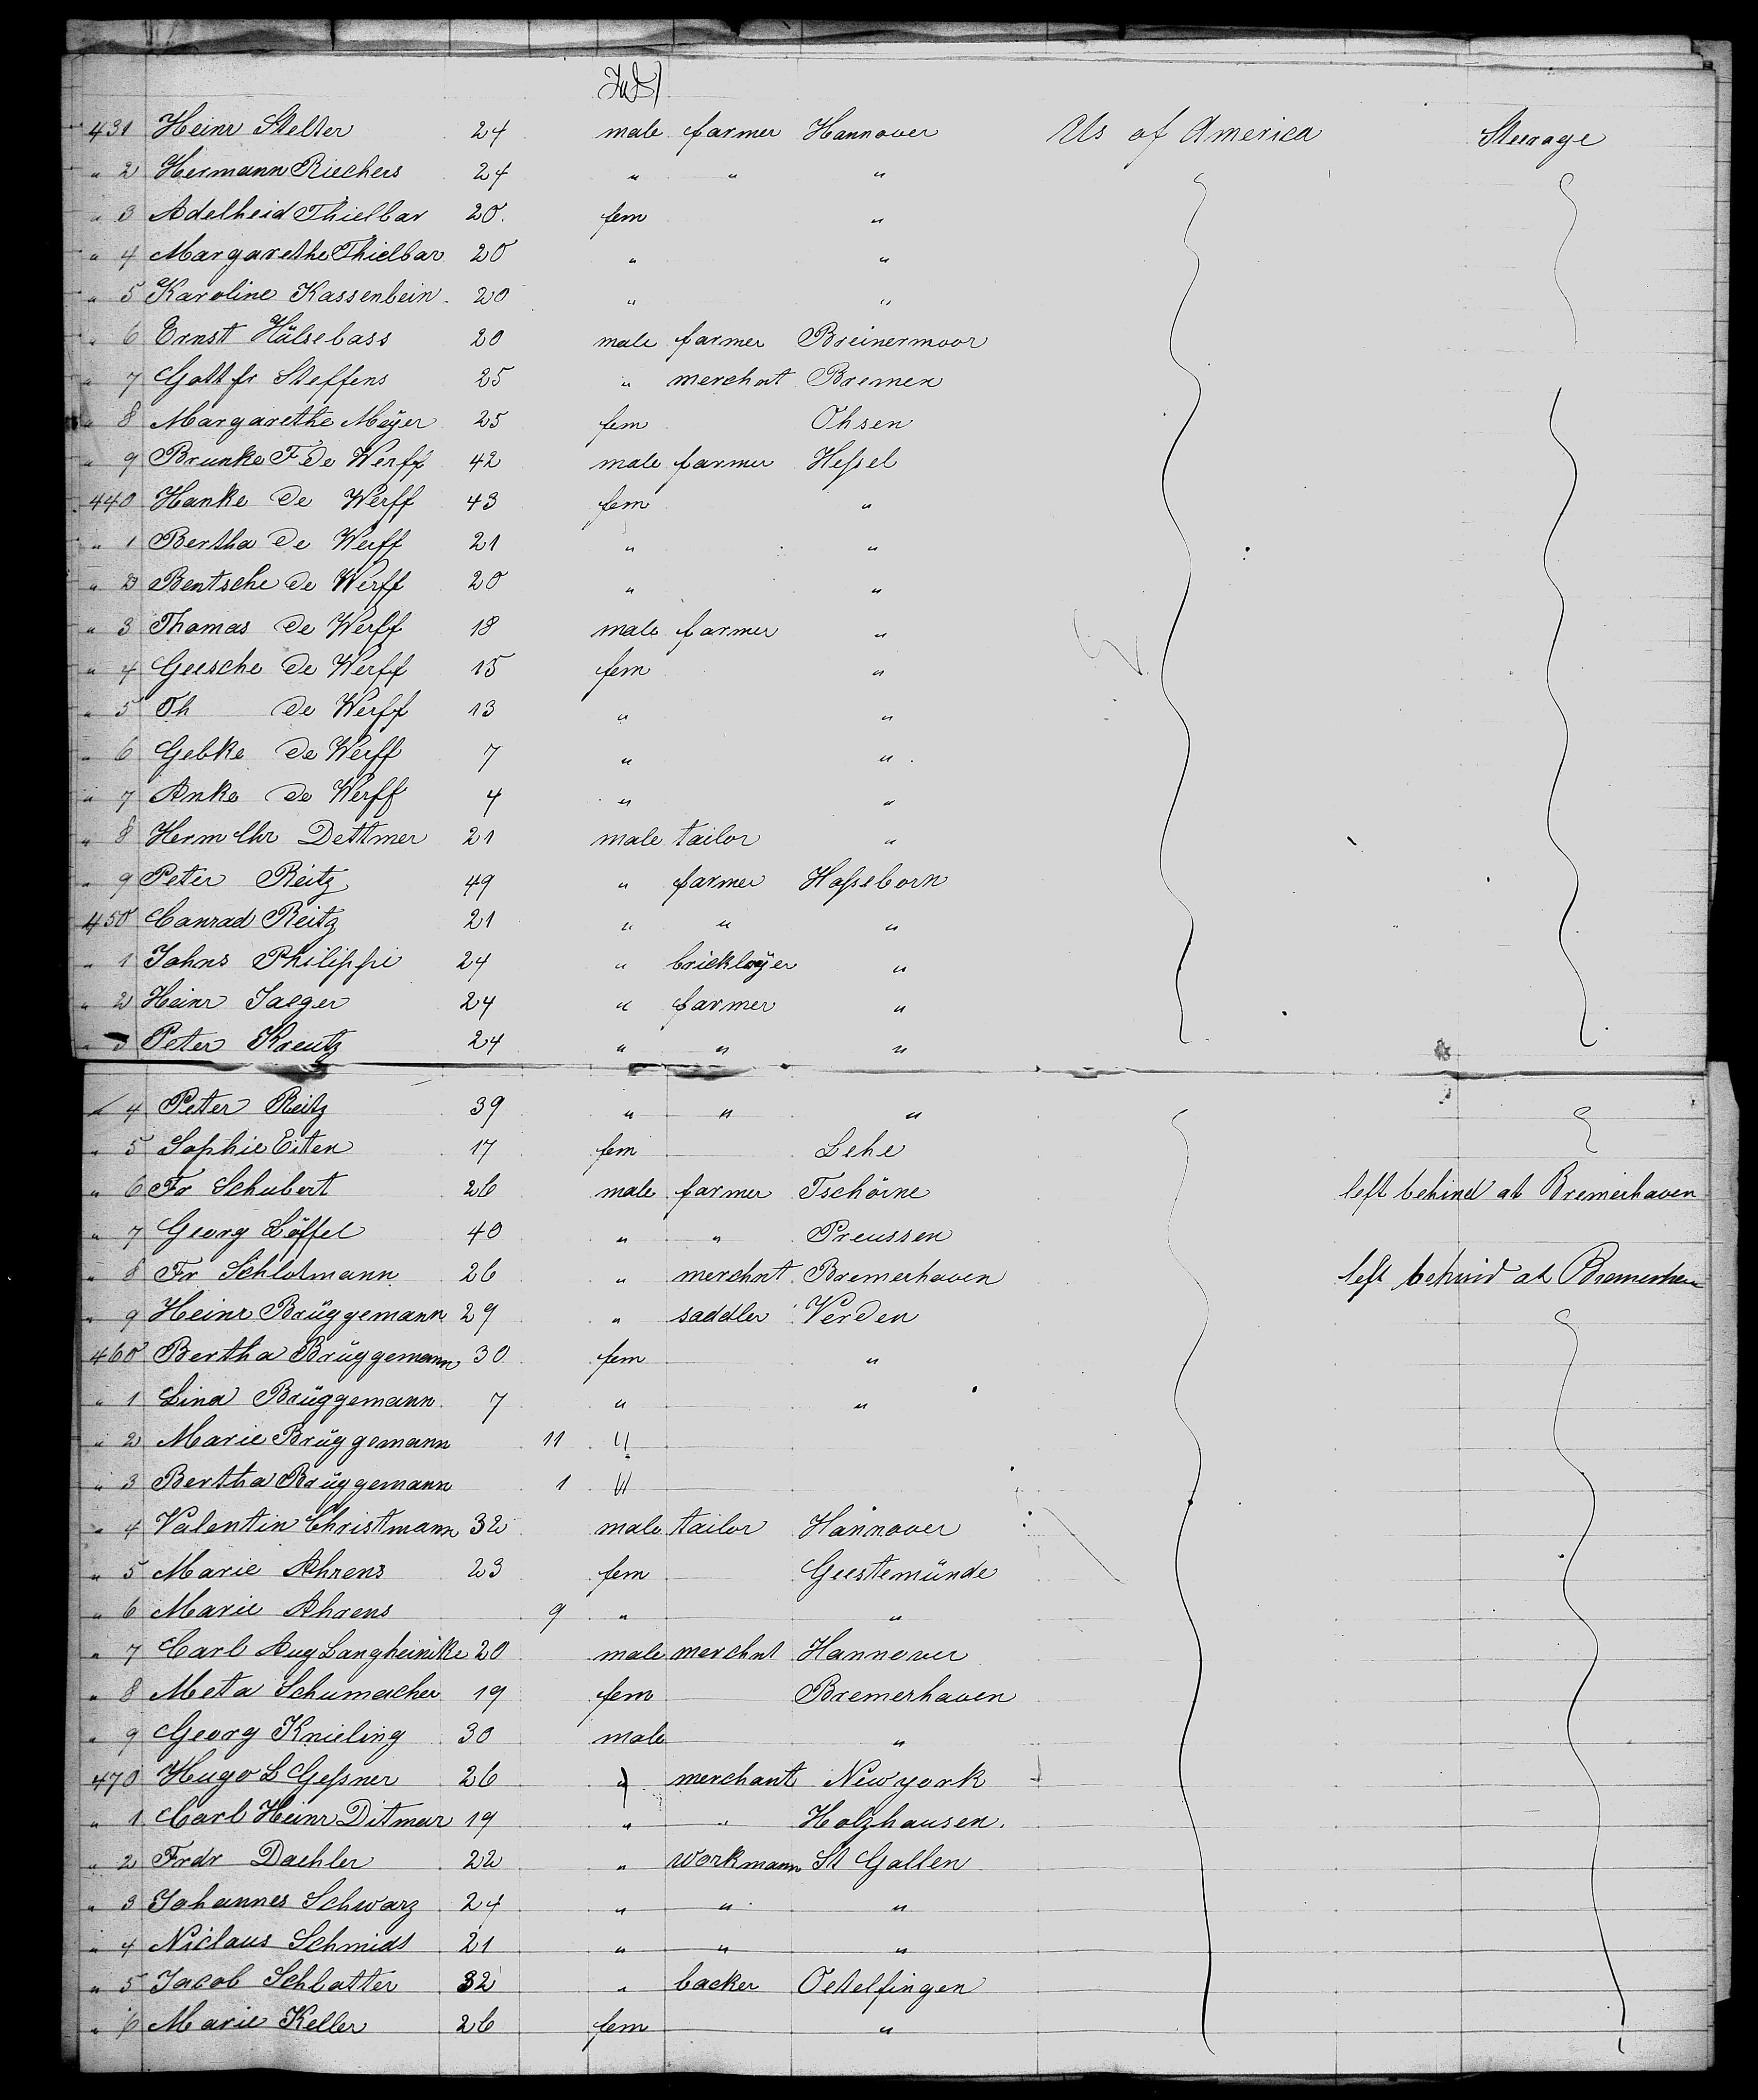 431 Heinr Stelter 24 male farmer Hannover US of America Steerage
" 2 Hermann Riechers 24 " " "
" 3 Adelheid Thielbar 20. fem "
" 4 Margarethe Thielbar 20 " "
" 5 Karoline Kassenbein 20 " "
" 6 Ernst Hülsebass 20 male farmer Breinermoor
" 7 Gottfr Steffens 25 " merchnt Bremen
" 8 Margarethe Meÿer 25 fem Ohsen
" 9 Brunke F De Werff 42 male farmer Heſsel
440 Hanke De Werff 43 fem "
" 1 Bertha De Werff 21 " "
" 2 Bentsche De Werff 20 " "
" 3 Thomas De Werff 18 male farmer "
" 4 Geesche De Werff 15 fem "
" 5 Th De Werff 13 " "
" 6 Gebke De Werff 7 " "
" 7 Anke De Werff 4 " "
" 8 Herm Chr Dettmer 21 male tailor "
" 9 Peter Reitz 49 " farmer Haſselborn
450 Conrad Reitz 21 " " "
" 1 Johns Philippi 24 " bricklayer "
" 2 Heinr Jaeger 24 " farmer "
" 3 Peter Kreutz 24 " " "
" 4 Peter Reitz 39 " " "
" 5 Sophie Eiten 17 fem Lehe
" 6 Fr Schubert 26 male farmer Tschörne left behind at Bremerhaven
" 7 Georg Löffel 40 " " Preussen
" 8 Fr Schlotmann 26 " merchnt Bremerhaven left behind at Bremerhaven
" 9 Heinr Brüggemann 29 " saddler Verden
460 Bertha Brüggemann 30 fem "
" 1 Lina Brüggemann 7 " "
" 2 Marie Brüggemann 11 "
" 3 Bertha Brüggemann 1 "
" 4 Valentin Christmann 32 male tailor Hannover
" 5 Marie Ahrens 23 fem Geestemünde
" 6 Marie Ahrens 9 " "
" 7 Carl Aug Langheinike 20 male merchnt Hannover
" 8 Meta Schumacher 19 fem Bremerhaven
" 9 Georg Knieling 30 male "
470 Hugo L Geſsner 26 " merchant Newyork
" 1 Carl Heinr Ditmar 19 " " Holzhausen.
" 2 Frdr Daehler 22 " workmann St Gallen
" 3 Johannes Schwarz 24 " " "
" 4 Niclaus Schmidt 21 " " "
" 5 Jacob Schlatter 32 " backer Oetelfingen
" 6 Marie Keller 26 fem "